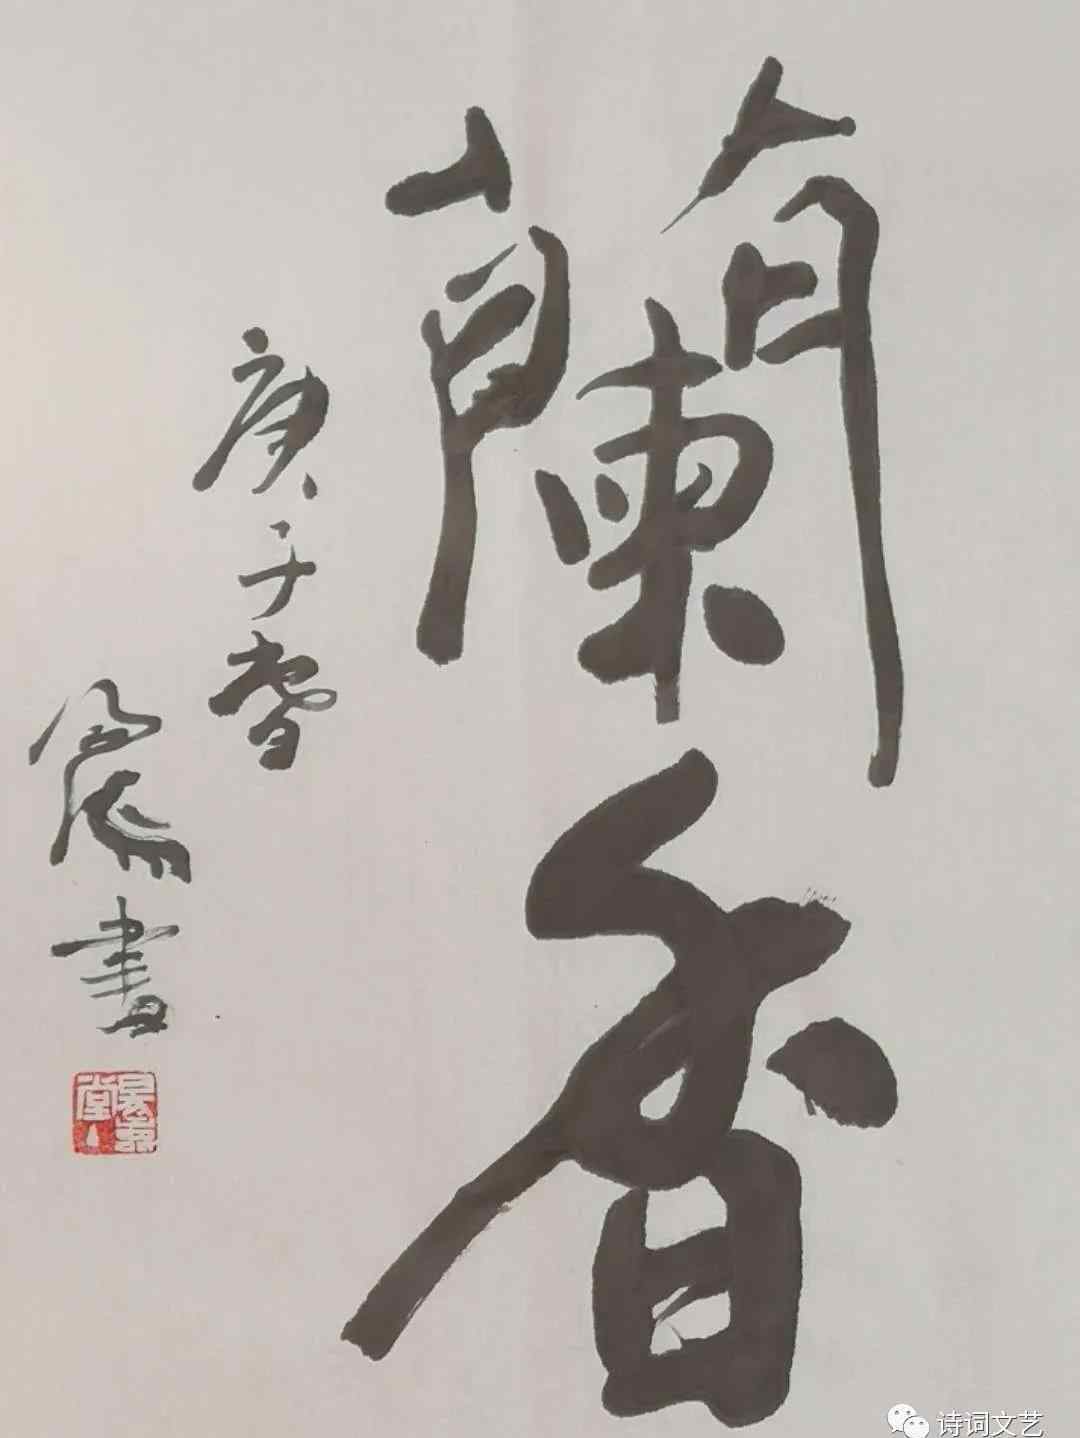 蘭香
庚子春
書
诗词文艺